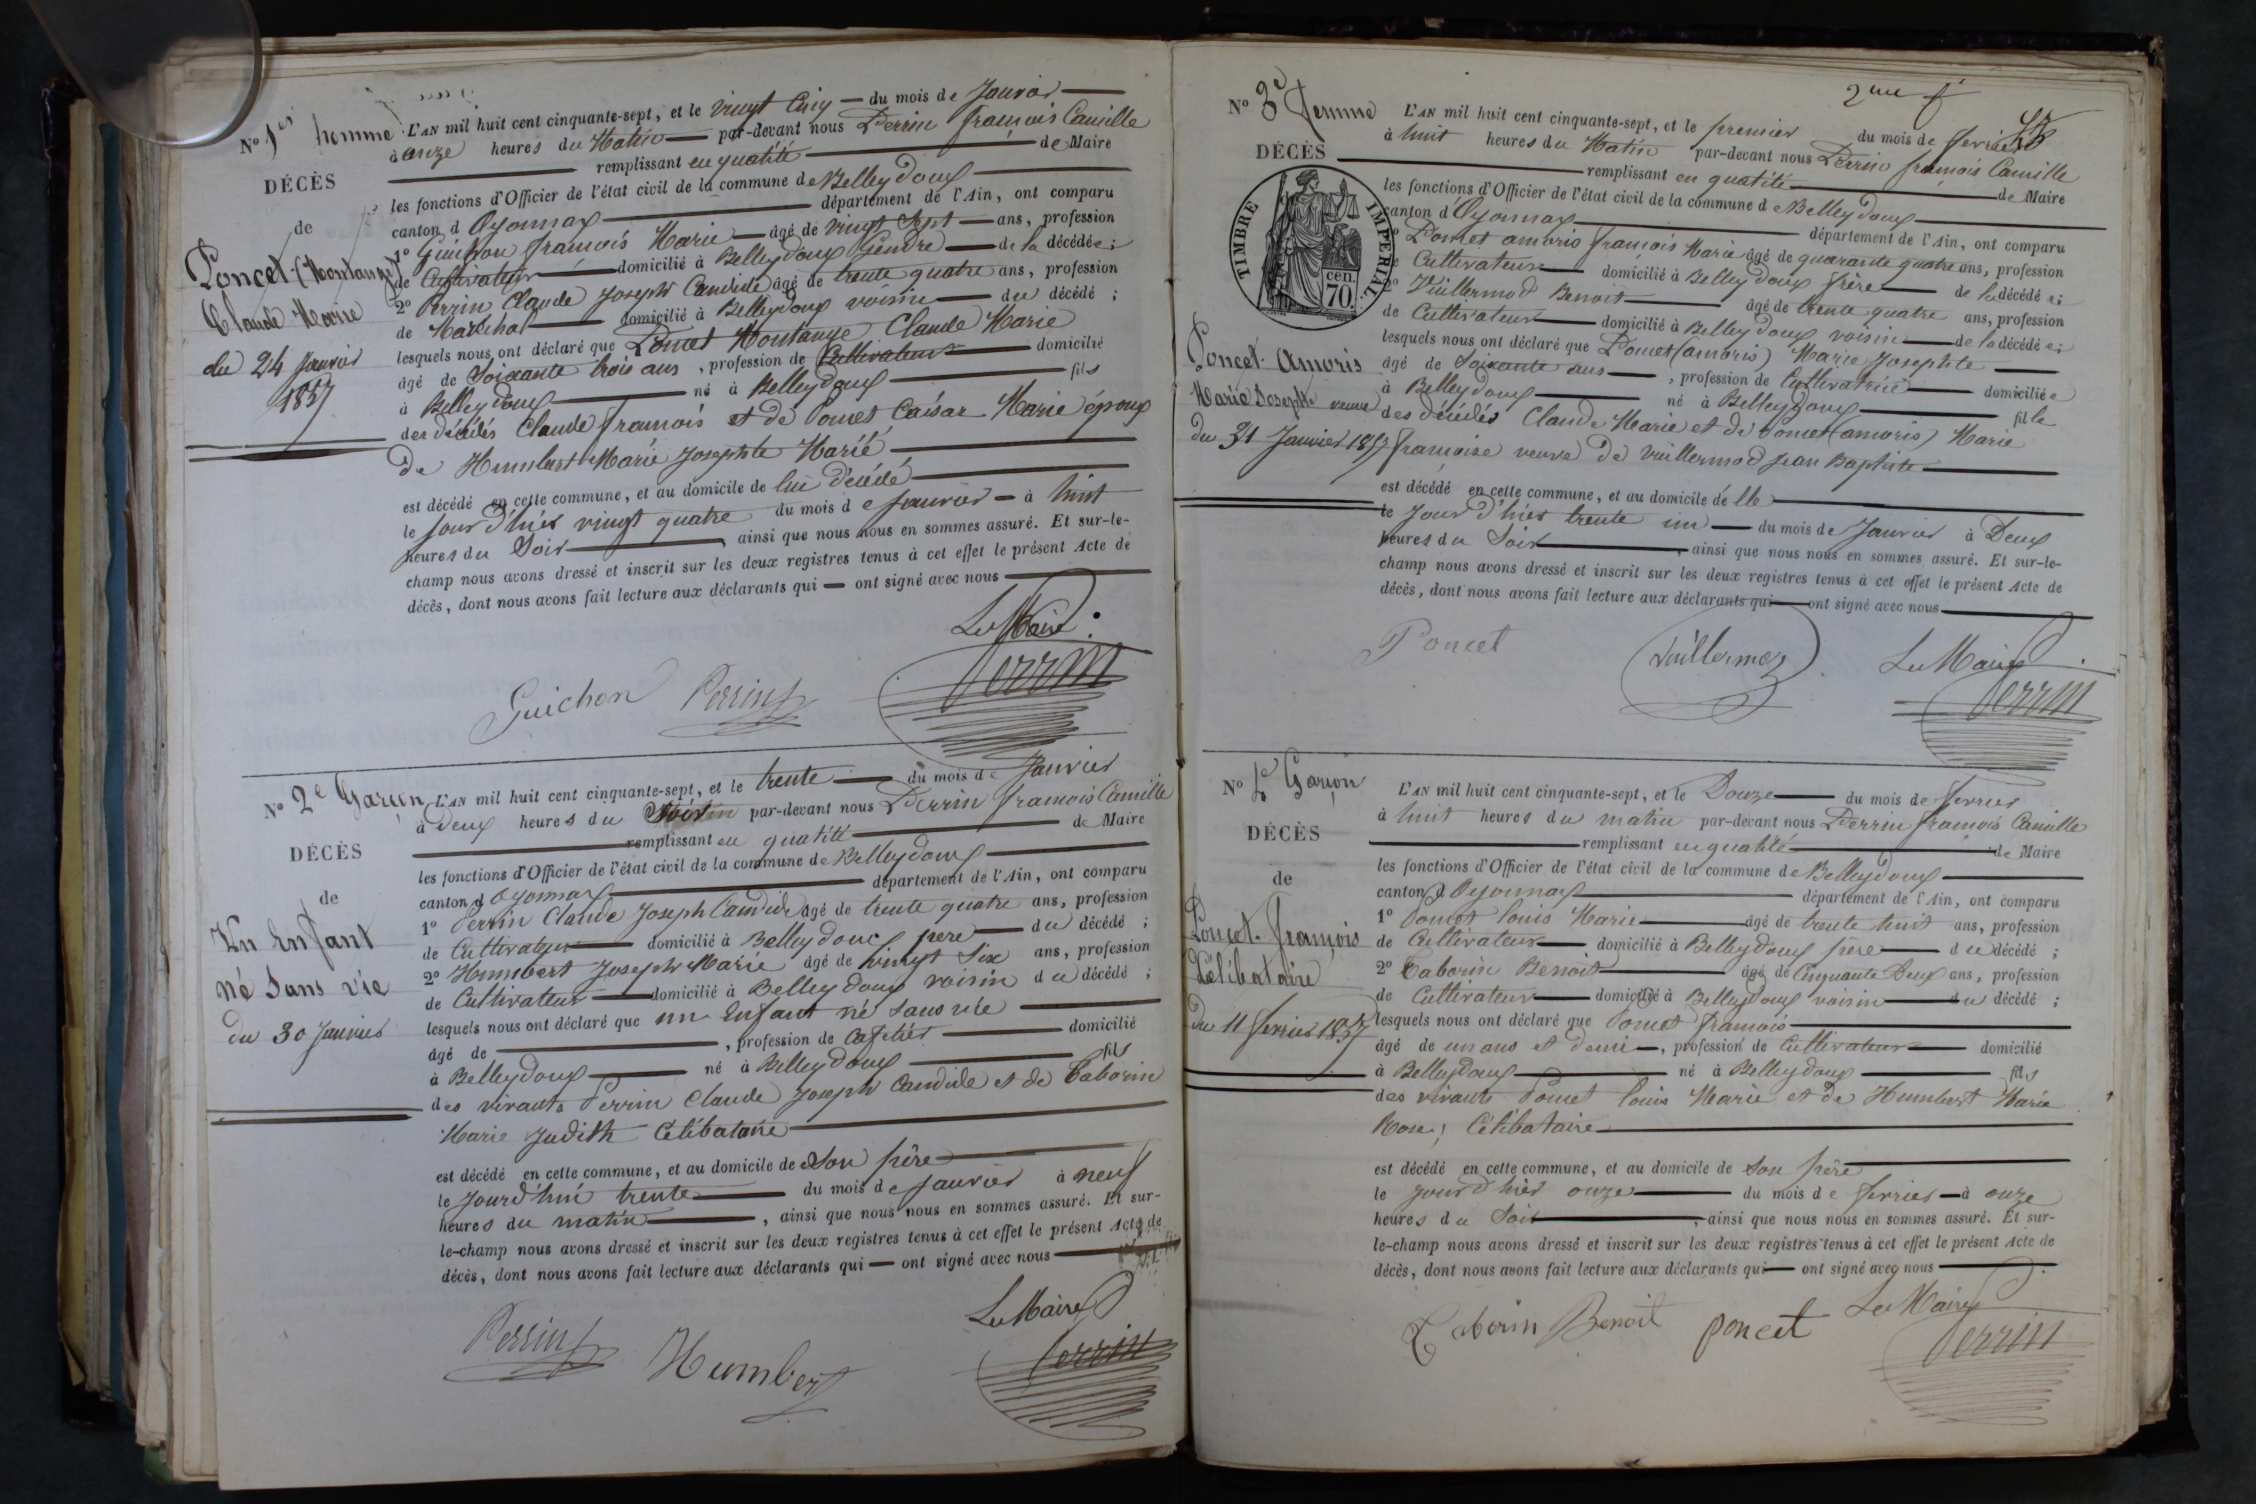 No 1er homme
DÉCÈS
de
Poncet-(Montange)
Claude Marie
du 24 Janvier
1857
L'AN mil huit cent cinquante-sept, et le vingt Cinq du mois de Janvier
à onze heures du Matin par-devant nous Perrin françois Camille
remplissant en qualité de Maire
les fonctions d'Officier de l'état civil de la commune de Belleydoux
canton d'Oyonnax département de l'Ain, ont comparu
1º Guichon françois Marie âgé de vingt Sept ans, profession
de Cultivateur domicilié à Belleydoux Gendre de la décédée;
2º Perrin Claude Joseph Candide âgé de trente quatre ans, profession
de Maréchal domicilié à Belleydoux voisin du décédé;
lesquels nous ont déclaré que Poncet Montange Claude Marie
âgé de Soixante trois ans, profession de Cultivateur domicilié
à Belleydoux né à Belleydoux fils
des décédés Claude françois et de Poncet Caísar Marie époux
de Humbert Marie Josephte Marié
est décédé en cette commune, et au domicile de lui décédé
le jour d'hier vingt quatre du mois de janvier à huit
heures du Soir, ainsi que nous nous en sommes assuré. Et sur-le-
champ nous avons dressé et inscrit sur les deux registres tenus à cet effet le présent Acte de
décès, dont nous avons fait lecture aux déclarants qui ont signé avec nous
Le Maire
Guichon Perrin Perrin
No 2e Garçon
DÉCÈS
de
Un Enfant
né Sans vie
du 30 Janvier
L'AN mil huit cent cinquante-sept, et le trente du mois de Janvier
à Deux heures du Soir par-devant nous Perrin françois Camille
remplissant en qualité de Maire
les fonctions d'Officier de l'état civil de la commune de Belleydoux
canton d'Oyonnax département de l'Ain, ont comparu
1º Perrin Claude Joseph Candide âgé de trente quatre ans, profession
de Cultivateur domicilié à Belleydoux pere du décédé;
2º Humbert Joseph Marie âgé de vingt Six ans, profession
de Cultivateur domicilié à Belleydoux voisin du décédé;
lesquels nous ont déclaré que un Enfant né sans vie
âgé de , profession de domicilié
à Belleydoux né à Belleydoux fils
des vivants Perrin Claude Joseph Candide et de Taborin
Marie Judith Célibataire
est décédé en cette commune, et au domicile de Son père
le Jourd'hui trente du mois de janvier à neuf
heures du matin, ainsi que nous nous en sommes assuré. Et sur-
le-champ nous avons dressé et inscrit sur les deux registres tenus à cet effet le présent Acte de
décès, dont nous avons fait lecture aux déclarants qui ont signé avec nous
Le Maire
Perrin Humbert Perrin
2me f
No 3e femme
DÉCÈS
TIMBRE IMPÉRIAL
cen.
70.
Poncet-Amoris
Marie Josephte veuve
du 31 Janvier 1857
L'AN mil huit cent cinquante-sept, et le premier du mois de fevrier
à huit heures du Matin par-devant nous Perrin françois Camille
remplissant en qualité de Maire
les fonctions d'Officier de l'état civil de la commune de Belleydoux
canton d'Oyonnax département de l'Ain, ont comparu
1º Poncet amoris françois Marie âgé de quarante quatre ans, profession
de Cultivateur domicilié à Belleydoux frère de la décédée;
2º Vuillermod Benoit âgé de trente quatre ans, profession
de Cultivateur domicilié à Belleydoux voisin de la décédée;
lesquels nous ont déclaré que Poncet (amoris) Marie Josephte
âgé de Soixante ans, profession de Cultivatrice domiciliée
à Belleydoux né à Belleydoux fille
des décédés Claude Marie et de Poncet (amoris) Marie
françoise veuve de vuillermod Jean Baptiste
est décédé en cette commune, et au domicile d'elle
le jour d'hier trente un du mois de Janvier à Deux
heures du Soir, ainsi que nous nous en sommes assuré. Et sur-le-
champ nous avons dressé et inscrit sur les deux registres tenus à cet effet le présent Acte de
décès, dont nous avons fait lecture aux déclarants qui ont signé avec nous
Poncet Vuillermoz Le Maire
Perrin
No 4e Garçon
DÉCÈS
de
Poncet-françois
Célibataire
du 11 fevrier 1857
L'AN mil huit cent cinquante-sept, et le Douze du mois de fevrier
à huit heures du matin par-devant nous Perrin françois Camille
remplissant en qualité de Maire
les fonctions d'Officier de l'état civil de la commune de Belleydoux
canton d'Oyonnax département de l'Ain, ont comparu
1º Poncet louis Marie âgé de trente huit ans, profession
de Cultivateur domicilié à Belleydoux père du décédé;
2º Taborin Benoit âgé de Cinquante Deux ans, profession
de Cultivateur domicilié à Belleydoux voisin du décédé;
lesquels nous ont déclaré que Poncet françois
âgé de un ans et demi, profession de Cultivateur domicilié
à Belleydoux né à Belleydoux fils
des vivants Poncet louis Marie et de Humbert Marie
Rose; Célibataire
est décédé en cette commune, et au domicile de Son père
le jour d'hier onze du mois de fevrier à onze
heures du Soir, ainsi que nous nous en sommes assuré. Et sur-
le-champ nous avons dressé et inscrit sur les deux registres tenus à cet effet le présent Acte de
décès, dont nous avons fait lecture aux déclarants qui ont signé avec nous
Taborin Benoit poncet Le Maire
Perrin